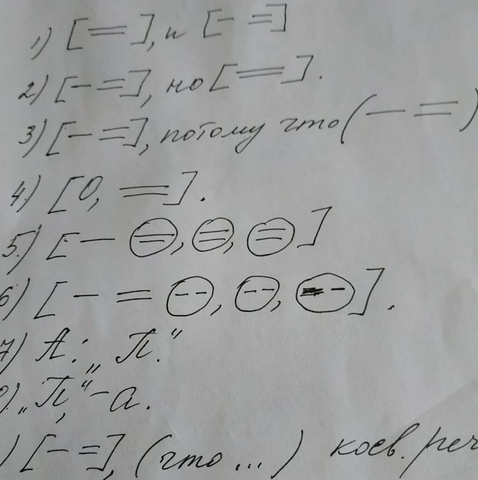 1) [=], и [- =]
2) [- =], но [=].
3) [- =], потому что (- =)
4) [О, =].
5) [- (=), (=), (=)]
6) [- = (--), (--), (--)].
7) А: „П."
8) „П,"-а.
) [- =], (что ...) косв. реч